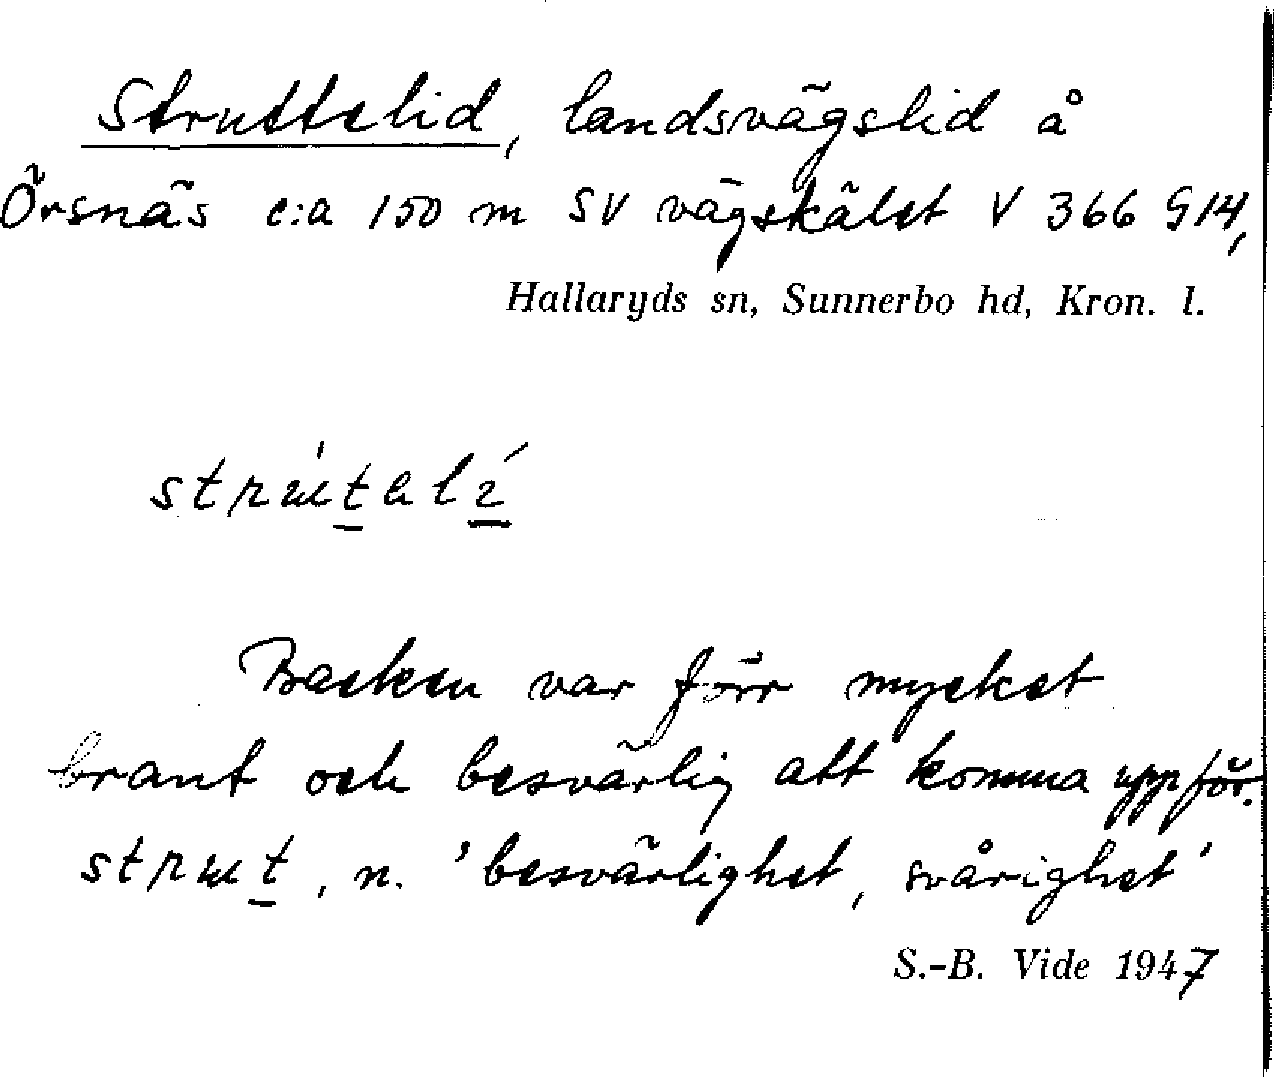 Struttelid, landsvägslid å
Örsnäs c:a 150 m SV vägskälet V 366 G14,
Hallaryds sn, Sunnerbo hd, Kron. l.
Backen var förr mycket
brant och besvärlig att komma uppför.
strut, n. 'besvärlighet, svårighet'
S.-B. Vide 1947